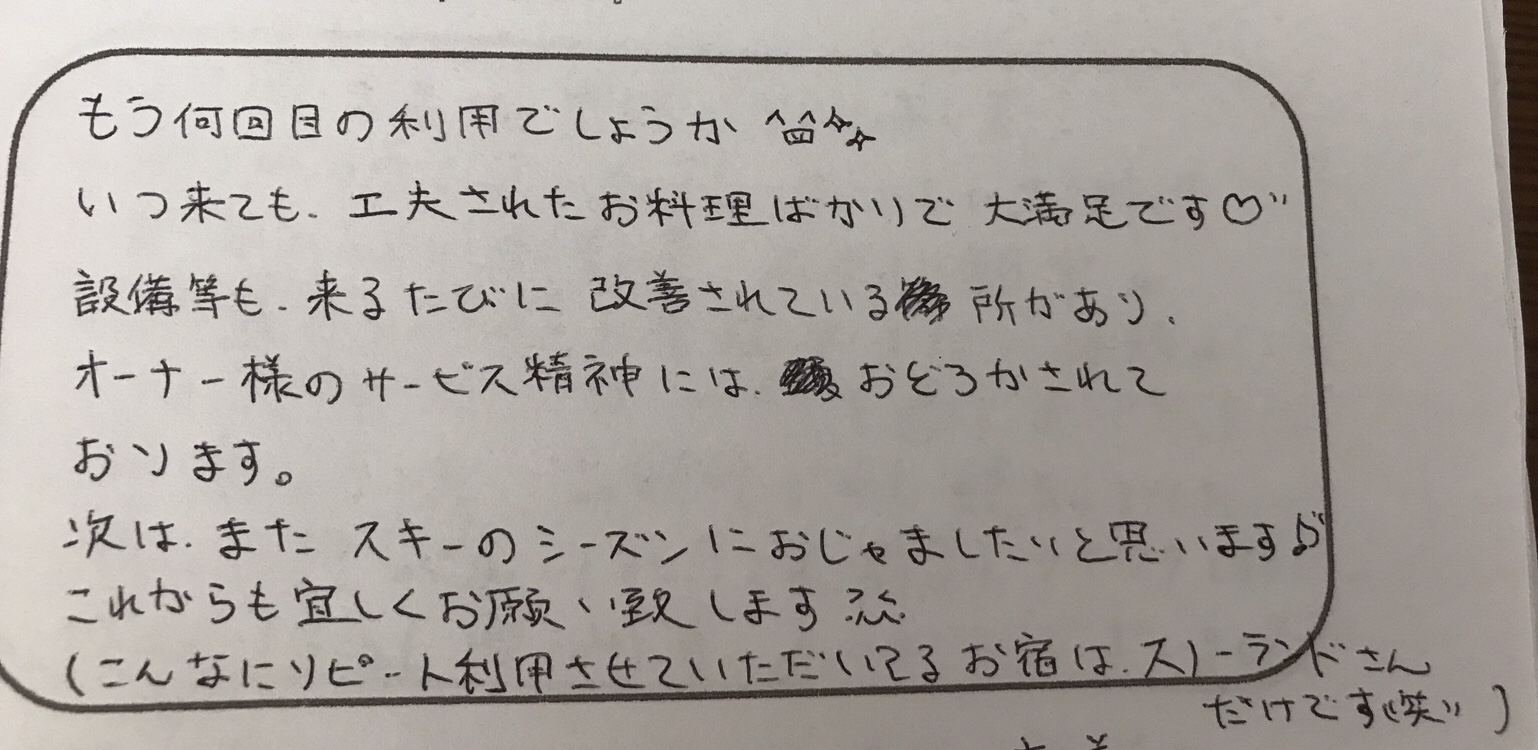 もう何回目の利用でしょうか ^皿^
いつ来ても、工夫されたお料理ばかりで大満足です♡"
設備等も、来るたびに改善されている所があり、
オーナー様のサービス精神には、おどろかされて
おります。
次は、また スキーのシーズンにおじゃましたいと思います♪"
これからも宜しくお願い致します
(こんなにリピート利用させていただいてるお宿は、スノーランドさん
だけです(笑)")